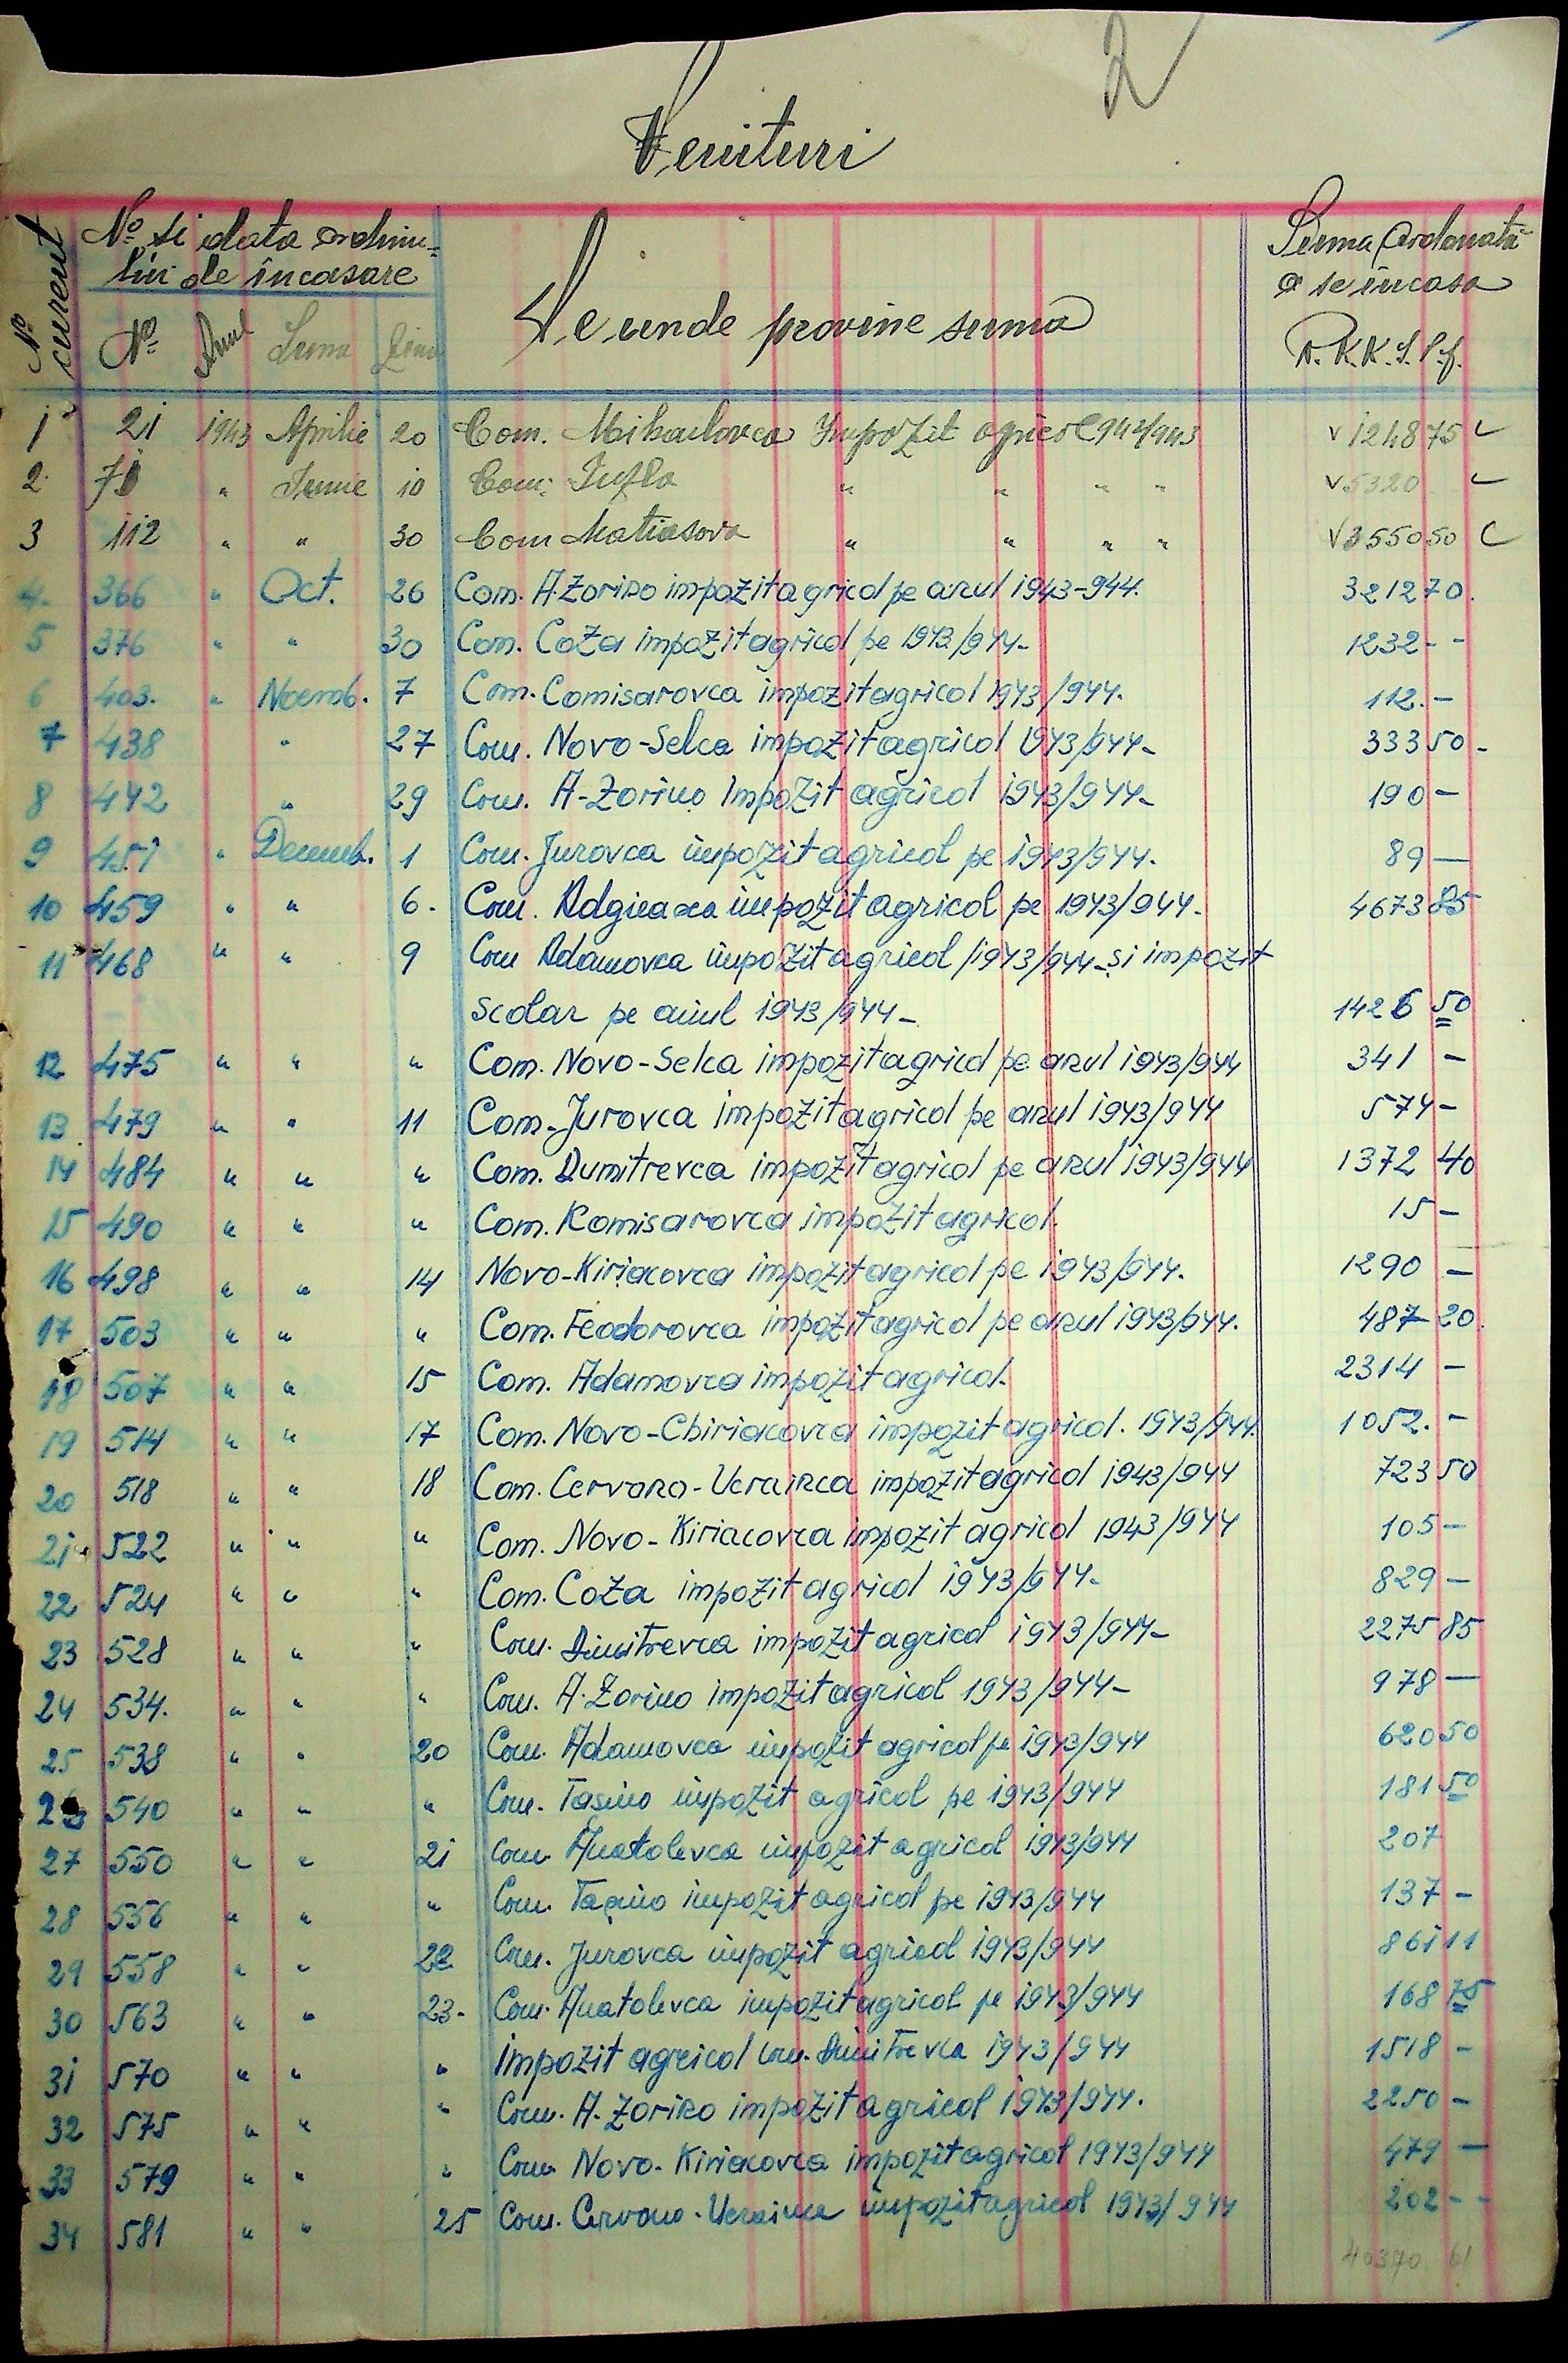 2
Venituri
No curent
No si data ordinu-
lui de încasare
No Anul Luna Ziua
De unde provine suma
Suma ordonată
a se incasa
R.K.K.S. Pf.
1 21 1943 Aprilie 20 Com. Mihailovca Impozit agricol 942/943 1248 75
2 " Iunie 10 Com. " " " " 5320
3 112 " " 30 Com Matiasova " " " " 3550 50
4. 366 " Oct. 26 Com. A. Zorino impozit agricol pe anul 1943-944. 3212 70.
5 376 " " 30 Com. Coza impozit agricol pe 1943/944- 1232 - -
6 403. " Noemb. 7 Com. Comisarovca impozit agricol 1943/944. 112. -
7 438 " 27 Com. Novo-Selca impozit agricol 1943/944- 333 50 -
8 442 " 29 Com. A-Zorino Impozit agricol 1943/944- 190 -
9 451 " Decemb. 1 Com. Jurovca impozit agricol pe 1943/944. 89 —
10 459 " " 6. Com. impozit agricol pe 1943/944. 4673 85
11 468 " " 9 Com Adamovca impozit agricol 1943/944- și impozit
scolar pe anul 1943/944- 1426 50
12 475 " " " Com. Novo-Selca impozit agricol pe anul 1943/944 341 -
13 479 " " 11 Com. Jurovca impozit agricol pe anul 1943/944 574 -
14 484 " " " Com. Dumitrevca impozit agricol pe anul 1943/944 1372 40
15 490 " " " Com. Komisarovca impozit agricol. 15 -
16 498 " " 14 Novo-Kiriacovca impozit agricol pe 1943/944. 1290 -
17 503 " " " Com. Feodorovca impozit agricol pe anul 1943/944. 487 20.
18 507 " " 15 Com. Adamovca impozit agricol. 2314 -
19 514 " " 17 Com. Novo-Chiriacovca impozit agricol. 1943/944. 1052. -
20 518 " " 18 Com. Cervono-Ucrainca impozit agricol 1943/944 723 50
21 522 " " " Com. Novo-Kiriacovca impozit agricol 1943/944 105 -
22 524 " " " Com. Coza impozit agricol 1943/944- 829 -
23 528 " " " Com. Dimitrevca impozit agricol 1943/944- 2275 85
24 534. " " " Com. A. Zorino impozit agricol 1943/944- 978 —
25 538 " " 20 Com. Adamovca impozit agricol pe 1943/944 620 50
26 540 " " " Com. Tasino impozit agricol pe 1943/944 181 50
27 550 " " 21 Com. Anatolevca impozit agricol 1943/944 207
28 556 " " " Com. Tasino impozit agricol pe 1943/944 137 -
29 558 " " 22 Com. Jurovca impozit agricol 1943/944 861 11
30 563 " " 23- Com. Anatolevca impozit agricol pe 1943/944 168 75
31 570 " " " Impozit agricol com. Dimitrevca 1943/944 1518 -
32 575 " " " Com. A. Zorino impozit agricol 1943/944. 2250 -
33 579 " " " Com. Novo-Kiriacovca impozit agricol 1943/944 479 —
34 581 " " 25 Com. Cervono-Ucrainca impozit agricol 1943/944 202 - -
40370 61